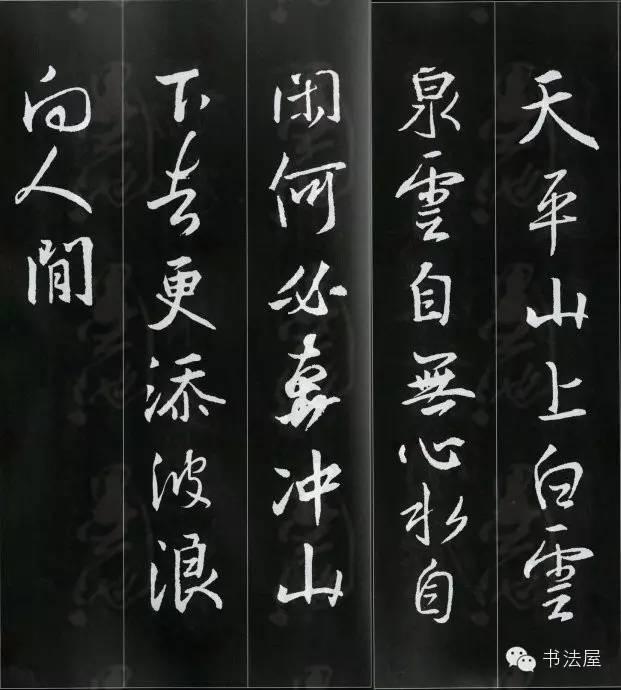 天平山上白雲
泉雲自無心水自
閑何必奔冲山
下去更添波浪
向人間
书法屋